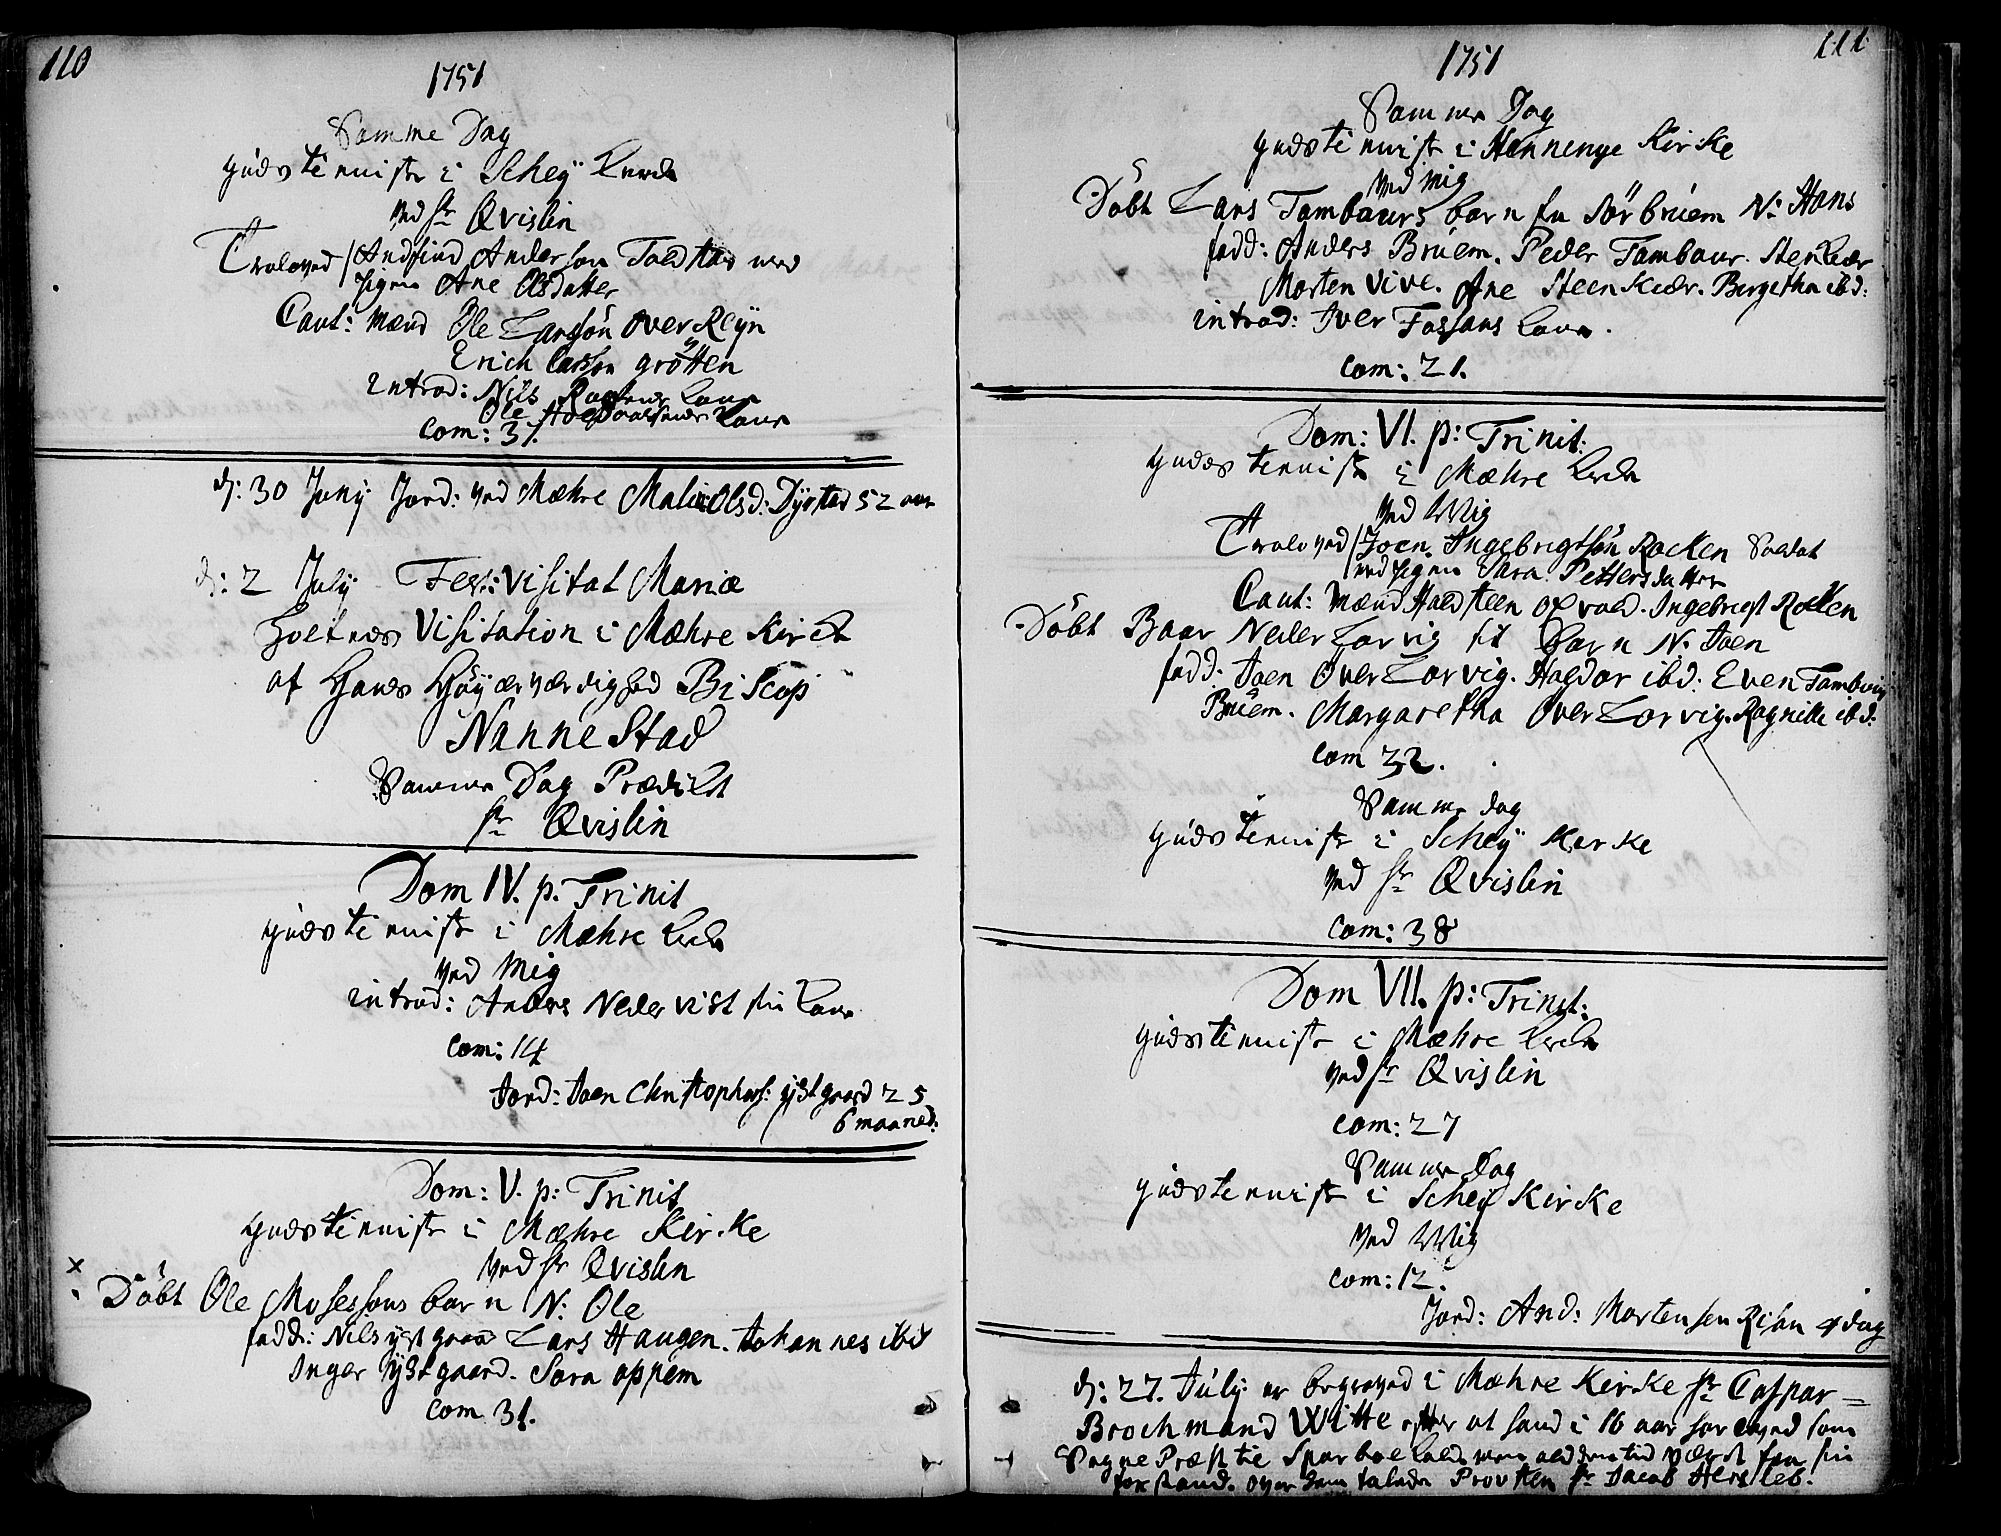 110
1751
Samme Dag
gudstienniste i Schey Kircke
ved Hr Qvislin
Troloved / Andfind Anderson Toldstad med
Pigen Ane Olsdatter
Caut: Mænd Ole Larssön Over Reyn
Erich Larsson Grötten
introd: Nils kone
Ole kone
com: 37.
d: 30 Juny Jord: ved Mæhre Malie Olsd: Dyrstad 52 aar
d: 2 July Fest: Visitat Mariæ
Holtes Visitation i Mæhre Kirck
af Hands Höyærværdighed Biscop
Nannestad
Samme Dag Prædikt
Hr Qvislin
Dom IV. p. Trinit
gudstienniste i Mæhre Kircke
ved Mig
introd: Anders Neder Vist sin kone
com: 14
Jord: Joen Christophers: ystgaard 25
6 maaned:
Dom: V. p: Trinit
gudstienniste i Mæhre Kirke
ved Hr Qvislin
Döbt Ole Mosessons barn N: Ole
fadd: Nils ystgaard Lars Haugen. Johannes ibd
Inger ystgaard. Sara oppem
com 31.
111
1751
Samme Dag
gudstienniste i Hennenge Kirke
ved Mig
Döbt Lars Tambours barn fra Sörbruem N: Hans
fadd: Anders Bruem. Peder Tambour. Stenkier
Morten Vive. Ane Steenkier. Bergetha ibd:
introd: Iver Fossans kone.
com: 21.
Dom: VI. p: Trinit:
gudstienniste i Mæhre Kircke
ved Mig
Troloved / Joen Ingebrigtsön Rocken Soldat
med Pigen Sara Pettersdatter
Caut: Mænd Haldsteen opvold. Ingebrigt Rocken
Döbt Baar Neder Lorvig sit barn N: Joen
fadd: Joen Over Lorvig. Haldor ibd: Even
Bruem. Margaretha Over Lorvig. Ragnille ibd:
com 32.
Samme dag
gudstienniste i Schey Kerke
ved Hr Qvislin
com: 38
Dom VII. p: Trinit:
gudstienniste i Mæhre Kircke
ved Hr Qvislin
com: 27
Samme dag
gudstienniste i Schey Kirke
ved Mig
com: 12.
Jord: And: Mortensen Risan 4 dag
d: 27. July er begraved i Mæhre Kirke Hr Caspar
Brochmand Witte efter at hand i 16 aar har leved som
Sogne Præst til Sparboe kald men ald den tid været fra sin
forstand. over ham talede Provsten Hr Jacob Hersleb.